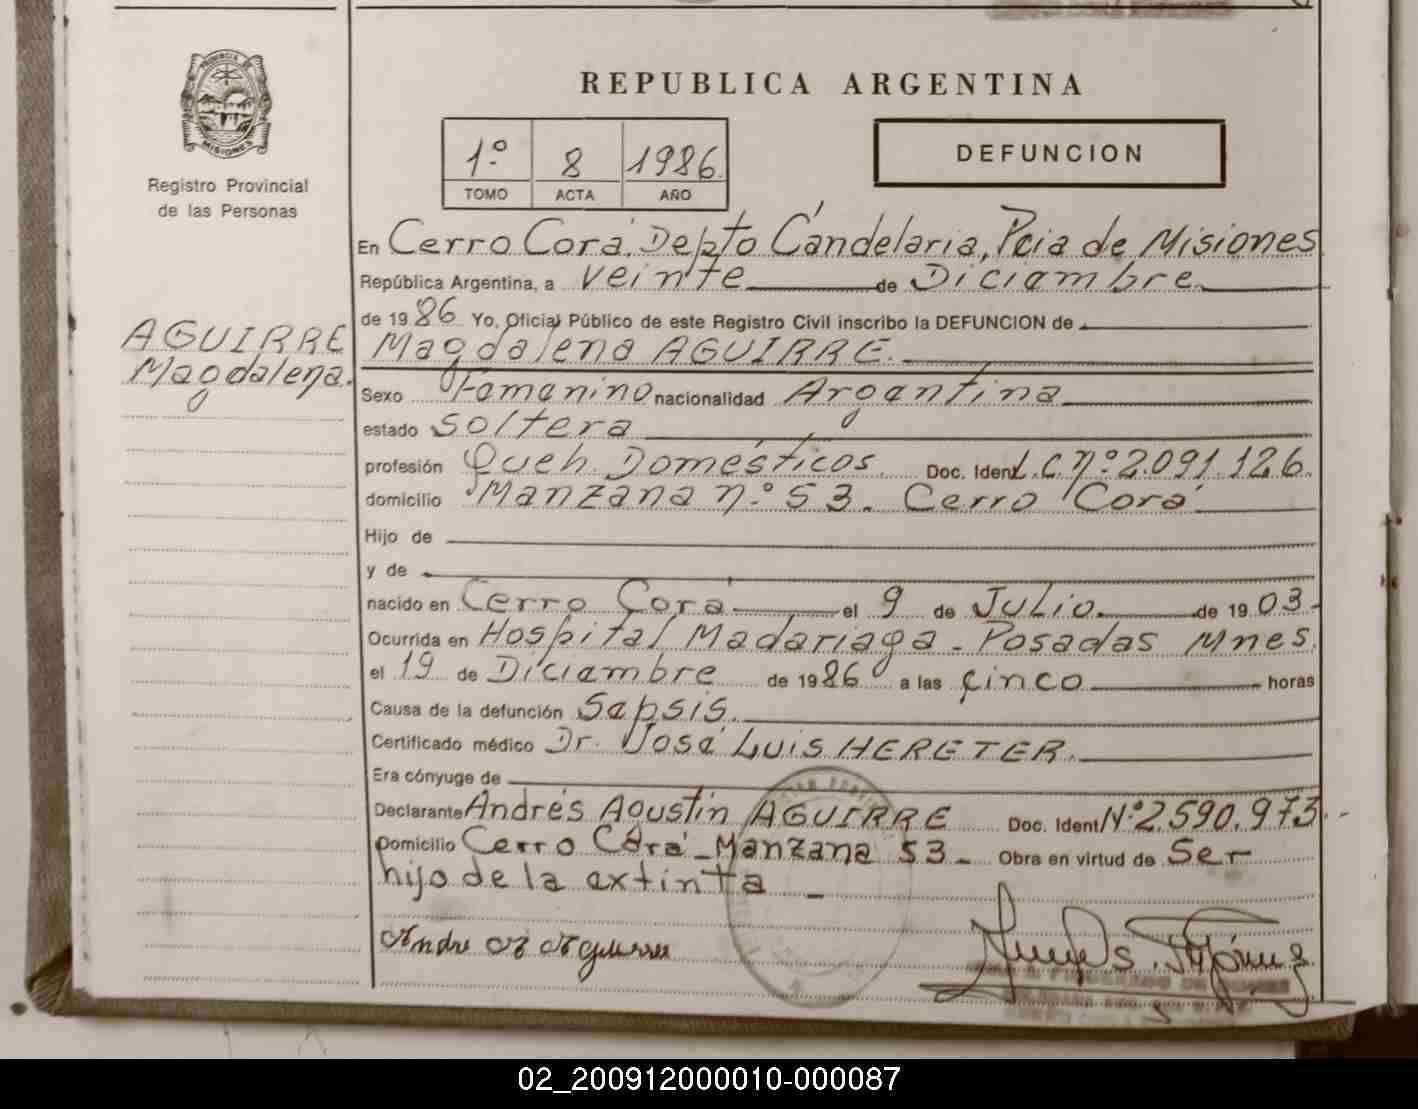 REPUBLICA ARGENTINA
PROVINCIA DE
MISIONES
Registro Provincial
de las Personas
1º 8 1986.
TOMO ACTA AÑO
DEFUNCION
AGUIRRE
Magdalena.
En Cerro Corá, Depto Candelaria, Pcia de Misiones
República Argentina, a veinte de Diciembre
de 1986 Yo, Oficial Público de este Registro Civil inscribo la DEFUNCION de
Magdalena AGUIRRE.
Sexo Femenino nacionalidad Argentina
estado soltera
profesión Queh. Domésticos. Doc. Ident L.C. nº 2.091.126.
domicilio Manzana nº 53. Cerro Corá
Hijo de
y de
nacido en Cerro Corá el 9 de Julio de 1903
Ocurrida en Hospital Madariaga - Posadas Mnes.
el 19 de Diciembre de 1986 a las cinco horas
Causa de la defunción Sepsis.
Certificado médico Dr. José Luis HERETER.
Era cónyuge de
Declarante Andrés Agustín AGUIRRE Doc. Ident Nº 2.590.973
Domicilio Cerro Corá - Manzana 53 - Obra en virtud de Ser
hijo de la extinta
Andre Aguirre
02_200912000010-000087